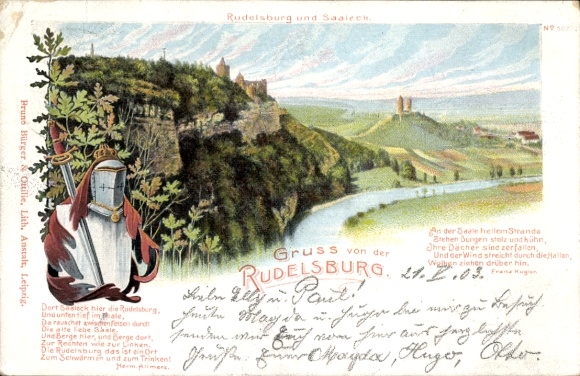 Rudelsburg und Saaleck.
Bruno Bürger & Ottilie, Lith. Anstalt, Leipzig.
An der Saale hellem Strande
Stehen Burgen stolz und kühn,
Ihre Dächer sind zerfallen,
Und der Wind streicht durch die Hallen,
Wolken ziehen drüber hin.
Franz Kugler.
Gruss von der
Rudelsburg.
21. V. 03.
Dort Saaleck hier die Rudelsburg,
Und unten tief im Thale,
Da rauschet zwischen Felsen durch
Die alte liebe Saale.
Und Berge hier, und Berge dort,
Zur Rechten wie zur Linken,
Die Rudelsburg das ist ein Ort
Zum Schwärmen und zum Trinken!
Herm. Allmers.
Liebe Elly u. Paul!
Heute Magda u. Hugo bei mir zu Besuch
senden wir Euch von hier aus herzlichste
Grüße. Eure Magda, Hugo, Otto.